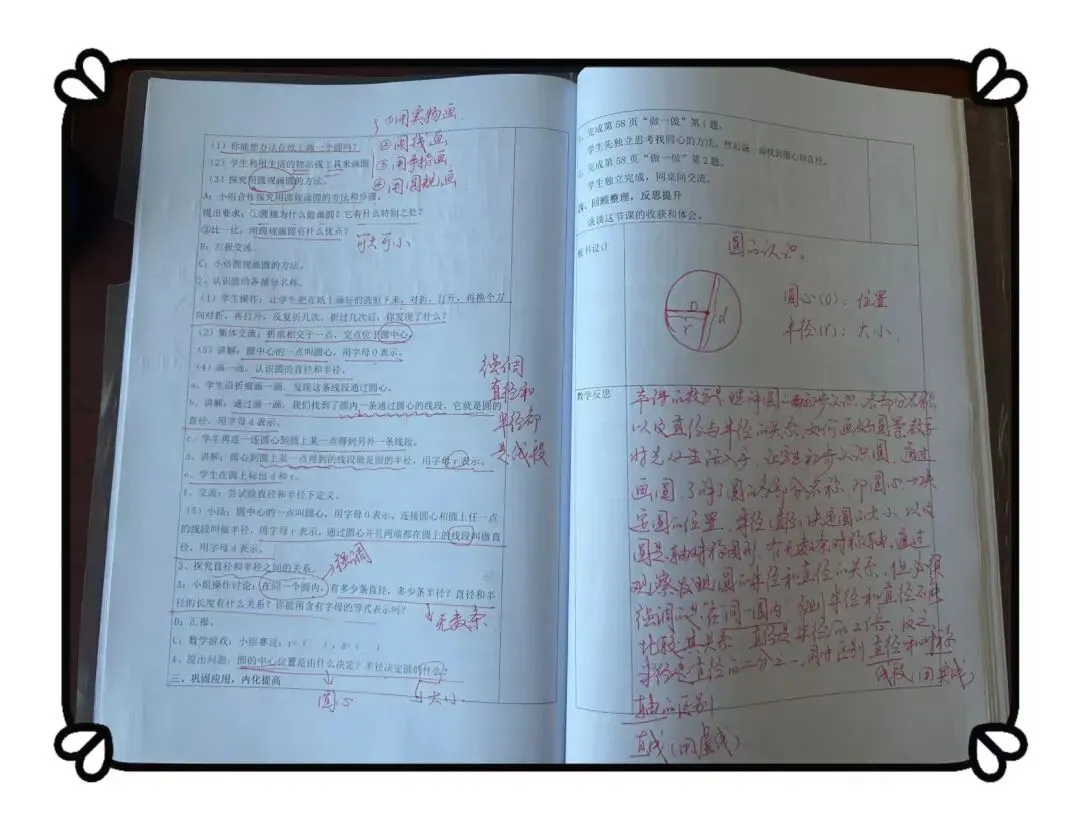 ①用实物画
(1)你能想办法在纸上画一个圆吗?
②用线画
(2)学生利用生活的物品或工具来画圆
③用手指画
(3)探究用圆规画圆的方法。
④用圆规画
A:小组合作探究用圆规画圆的方法和步骤。
提出要求:①圆规为什么能画圆?它有什么特别之处?
②比一比:用圆规画圆有什么优点?
可大可小
B:汇报交流。
C:小结圆规画圆的方法。
2、认识圆的各部分名称。
(1)学生操作:让学生把在纸上画好的圆剪下来,对折,打开,再换个方
向对折,再打开,反复折几次。折过几次后,你发现了什么?
(2)集体交流:折痕相交于一点,交点位于圆中心。
(3)讲解:圆中心的一点叫圆心,用字母O表示。
(4)画一画,认识圆的直径和半径。
a、学生沿折痕画一画,发现这条线段通过圆心。
b、讲解:通过画一画,我们找到了圆内一条通过圆心的线段,它就是圆的
直径。用字母d表示。
c、学生再连一连圆心到圆上某一点得到另外一条线段。
d、讲解:圆心到圆上某一点得到的线段就是圆的半径,用字母r表示。
e、学生在圆上标出d和r。
强调
直径和
半径都
是线段
f、交流:尝试给直径和半径下定义。
(5)小结:圆中心的一点叫圆心,用字母O表示,连接圆心和圆上任一点
的线段叫做半径,用字母r表示,通过圆心并且两端都在圆上的线段叫做直
径,用字母d表示。
3、探究直径和半径之间的关系。
强调
A:小组操作讨论:在同一个圆内,有多少条直径,多少条半径?直径和半
径的长度有什么关系?你能用含有字母的等式表示吗?
无数条
B:汇报。
C:数学游戏:小组赛说:r=( ),d=( )
4、提出问题:圆的中心位置是由什么决定?半径决定圆的什么?
三、巩固应用,内化提高
圆心
大小
1、完成第58页“做一做”第1题。
学生先独立思考找圆心的方法,然后画一画找到圆心和直径。
2、完成第58页“做一做”第2题。
学生独立完成,同桌间交流。
四、回顾整理,反思提升
谈谈这节课的收获和体会。
板书设计
圆的认识
O
r
d
圆心(O):位置
半径(r):大小
教学反思
本课的教学是圆的初步认识,各部分名称
以及直径与半径的关系,如何画好圆等,教学
时先从生活入手,让学生初步认识圆,通过
画圆,了解了圆的各部分名称,即圆心决
定圆的位置,半径直径决定圆的大小,以及
圆是轴对称图形,有无数条对称轴,通过
观察发现圆的半径和直径的关系,但必须
强调的是,在同一圆内,否则半径和直径不能
比较其关系,直径是半径的2倍,反之,
半径是直径的二分之一,同时区别直径和对称
线段(用实线)
轴的区别
直线(用虚线)